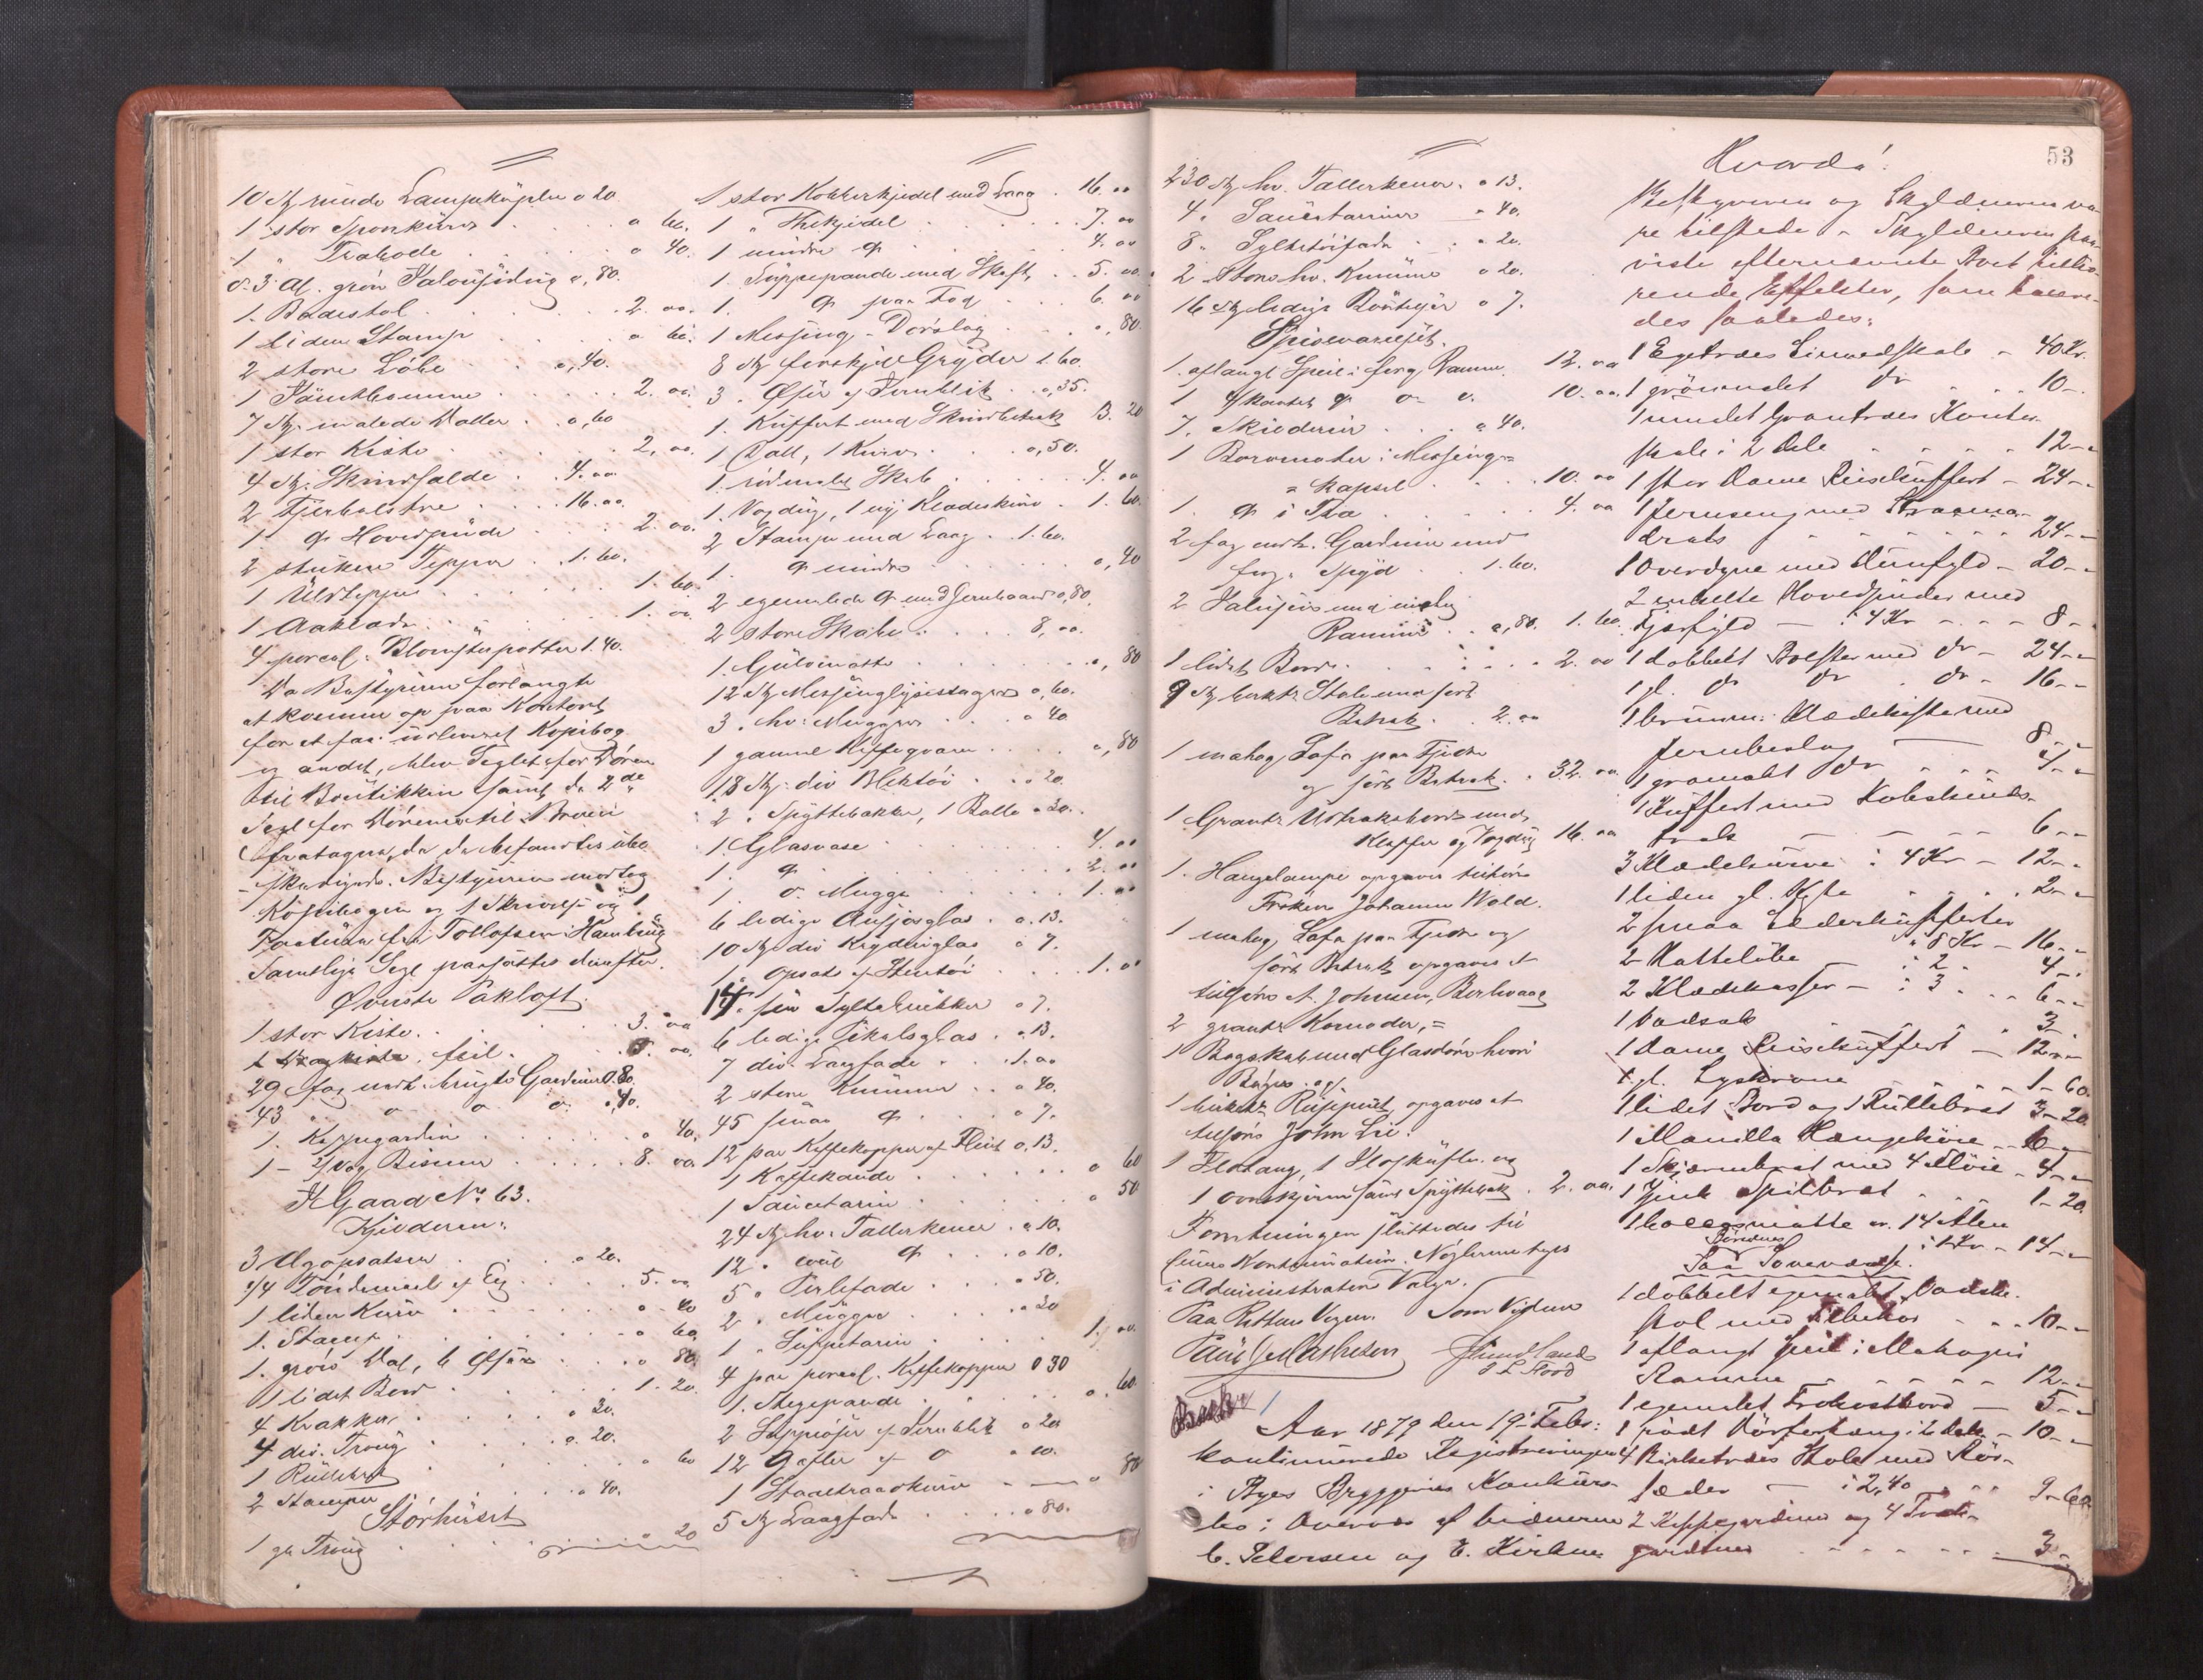 10 Stk runde Lampekupler a 20
1 stor Sponkurv . . . . o 60.
1 " Træbode . . . . o 40.
1. Badestol . . . . 2. oo.
1 liden Stamp . . . . o 60.
2 store Löbe . . o,40.
2. oo.
7 Stk. malede Daller . . o,60
1 stor Kiste . . . . 2, oo.
4 Stk. Skindfælde . . 4. oo
2 Fjerbolstre . . . . 16. oo.
1 do Hovedpude . . . 2. oo.
2 strikkede Tepper . . 1. 60.
1 Uldteppe . . . . 1. 60.
1 Aaklæde . . . . 1. oo.
4 porcel. Blomsterpotter 1. 40.
Da Bestyreren forlangte
at komme op paa Kontoret
for at faa udleveret Kopibog
og andet, blev Seglet for Dören
til Boutikken samt de 2de
Segl for Dörene til
fratagne, da de befandtes ube-
skadigede. Bestyreren modtog
Kopibogen og 1 Skrivelse og 1
Faktura fra Tollefsen Hamburg
Samtlige Segl paasattes derefter.
Överste Pakloft.
1 stor Kiste. . . . . 3. oo
29 fag medt. brugte Gardiner o.80.
43 " o o o . o,40.
1. Kappegardin . . . . o 40.
1 - 2/Vog Bismer . . . . 8. oo.
H Gaard No 63.
Kjelderen:
3 Ægopsatser . . . . o 20.
5. oo
1 liden Kurv . . . . o 40
1. Stamp . . . . . o 60.
o 80.
1 lidet Bord . . . . 1. 20.
4 Krakker . . . . o 20.
4 div. Troug . . . . o. 20.
1 Rullebræt . . . . o 60
2 Stamper . . . . o 40.
Störhuset
1 gl. Troug . . . . o 20
1 stor Kobberkjedel med Laag . 16. oo
1 " Thekjedel . . . . 7. oo
1 mindre do . . . . 4. oo
1. Suppepande med Skaft . . 5. oo.
1. do paa Fod . . . 6. oo
1 Messing-Dorslag . . . o,80.
8 Stk forskjel Gryder 1. 60.
3. Öser af Jernblik . . o,35.
1. Kuffert med Skindbetræk 3. 20
1 Dall, 1 Kurv . . . . o,50.
1. rödmalet Skab . . . . 4. oo
1. Voxdug, 1 ny Klædeskurv . 1. 60.
2 Stamper med Laag . 1. 60.
1. do mindre . . . . o,40
2 egemalede do med Jernbaand o,80.
2 store Skabe . . . . 8, oo.
1. Gulvmatte . . . . o,80
12 Stk Messinglysestager o,60.
3. hv. Mugger . . . o 40
1 gammel Kaffeqværn . . . . o,80
18 Stk. div Bliktöi . . . o 20.
2. Spyttebakker, 1 Balle o 30.
1. Glasvase . . . . 4. oo
1. do . . . . . 2. oo
1. o. Mugge . . . . 1. oo
6 ledige Ansjosglas . o. 13.
10 Stk div Kryderiglas o 7.
1. Opsats af Stentöi . . . . 1. oo
14. små Syltekrukker o 7.
6 ledige Pikelsglas . . o 13.
7 div. Laagfade . . . 1. oo
2 store Kummer . . o 40.
45 smaa do . . . o 7.
12 par Kaffekopper af Flint o. 13.
1 Kaffekande . . . . o 60
1 Saucetarin . . . . o 50
24 Stk hv. Tallerkener . o 10.
12. do . . . o 10.
5 " Perlefade . . . o 50.
2. Mugger . . . . o 20
1 " Suppetarin . . . . 1. oo.
4 par porcel. Kaffekopper o 30
1. Stegepande . . . . o. 60.
2 Suppeöser af Jernblik o 20
12 Gafler af o o 10.
1 Staaltraadskurv — — o 80
5 Stk Laagfade . . . . o 80.
230 Stk hv. Tallerkener. o 13.
4. Saucetariner — o 40.
8. Syltetöifade . . o 20.
2. store hv. Kummer o 20.
16 Stk ledige Bouteljer o 7.
Spiseværelset.
1. aflangt Speil i forg. Ramme. 12. oo
1 4kantet do o o. 10. oo.
7. Skilderier . . . o 40.
1 Barometer i Messing-
= kapsel . . . . 10. oo
1. do i Træ . . . . 4. oo
2 fag medt. Gardiner med
forg. Spyd . . 1. 60.
2 Jalousier med
Rammer . . o,80. 1. 60.
1 lidet Bord . . . . 2. oo
9 Stk birket. Stole med sort
Betræk . . 2. oo
1 mahog. Sofa paa Fjedre
og sort Betræk . . 32. oo.
1 Grantr. Udtræksbord med
Klapper og Voxdug 16. oo
1. Hængelampe opgaves tilhöre
Fröken Johanne Wold.
1 mahog. Sofa paa Fjedre og
sort Betræk opgaves at
tilhöre A. Johnsen, Birkevaag
2 grantr. Komoder, =
1 Bogskab med Glasdöre hvori
Böger . og
opgaves at
tilhöre John Lie.
1 Ildtang, 1 Ildskuffe og
1 Ovnskjerm samt Spyttebak . 2. oo.
Forretningen sluttedes til
senere Kontinuation. Nöglerne toges
i Administrators Værge.
Paa Rettens Vegne. Som Vidner
Paul J. Mathisen J Sundland
O L Nord
Aar 1879 den 19de Febr:
kontinuerede Registreringen
i Byes Bryggeries Konkurs-
bo i Overvær af Vidnerne
C. Petersen og E. Kirkne
53
Hvorda!
Bestyreren og Skyldneren va-
re tilstede. Skyldneren paa-
viste efternævnte Boet tilhö-
rende Effekter, som taxere-
des saaledes:
1 Egetræes Linnedskab - 40 Kr.
1 grönmalet do . . . 10 -
1 malet Grantræes Kontor-
skab i 2 Dele . . . 12 - -
1 stor Dame Reisekuffert - 24 - -
1 Jernseng med Straama-
drats . . . . 24 - -
1 Overdyne med Duunfyld - 20 - -
2 enkelte Hovedpuder med
Fjærfyld — à 4 Kr - - - 8 - -
1 dobbelt Bolster med do - 24 - -
1 gl. do do . do - 16 - -
1 brunm. Klædekiste med
Jernbeslag — 8 - -
1 graamalt do . . . 4 - -
1 Kuffert med Kobeskinds-
træk — — — 6 - -
3 Klædekurve à 4 Kr - 12 - -
1 liden gl. Kiste . . . 2 - -
2 smaa Læderkufferter
à 8 Kr - 16 - -
2 Hatteløbe — à 2. 4 - -
2 Klædekasser - à 3 . . . 6 - -
1 Vadsæk . . . . 3 -
1 Dame Reisekuffert — 12 - -
1 gl. Lysekrone . . . 1 - 60.
1 lidet Bord og 1 Rullebræt 3 - 20.
1 Manilla Hængekøie - 6 - -
1 Skjærmbræt med 4 Fløie - 4 - -
1 Zink Spilbræt . . . 1 - 20.
1 Cocosmatte ca. 14 Alen
à 1 Kr - 14 - -
Paa Soveværelse.
1 dobbelt egemalet Vaske-
stol med Tilbehør . . . 10 - -
1 aflangt Speil i Mahogni
Ramme — — — 12 - -
1 egemalet Frokostbord — 5 - -
1 rødt Dørforhæng i 2 dele - 10 - -
4 Birketræes Stole med Rør-
sæder — à 2,40 . . . 9 - 60.
2 Kappegardiner og 4 Træk-
gardiner . . . . 3 -